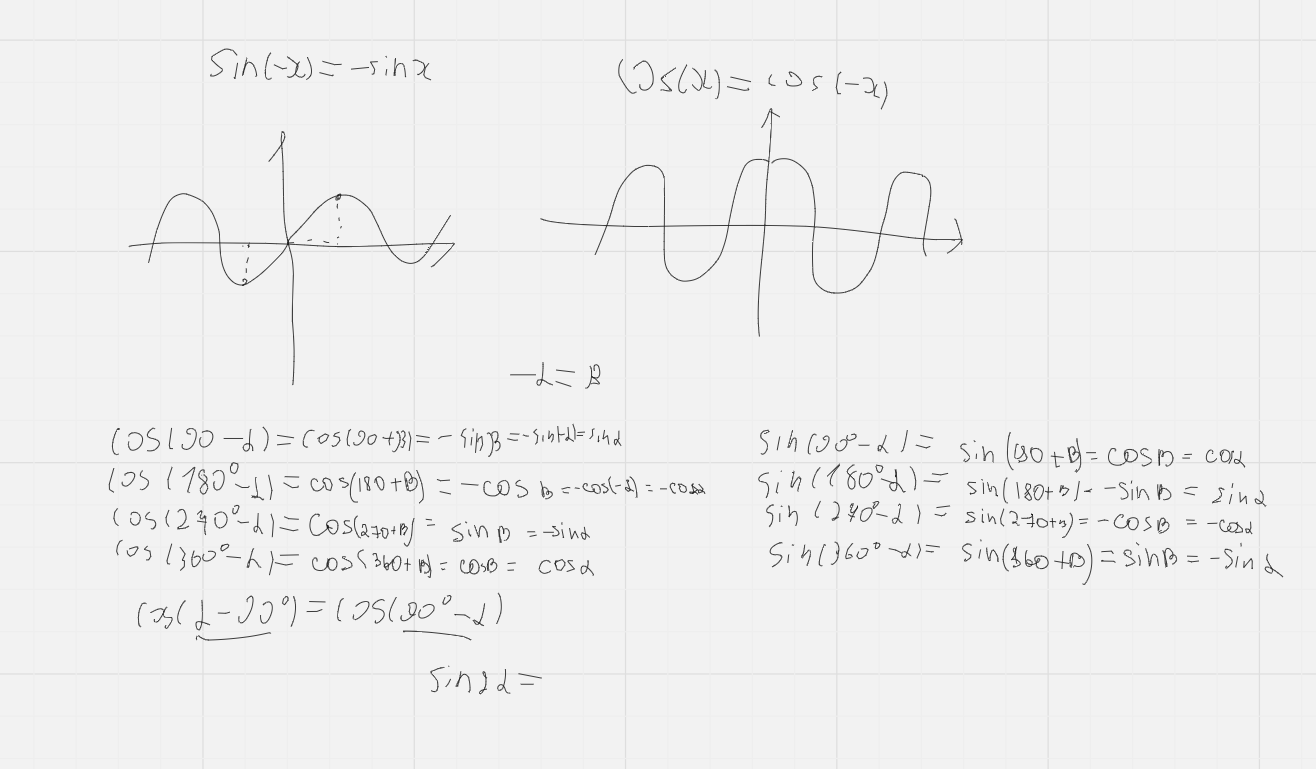 Sin(-x) = -sin x
Cos(x) = cos(-x)
-α = β
Cos(90 - α) = cos(90+β) = - sin β = -sin(-α) = sin α
Cos (180° - α) = cos(180+β) = -cos β = -cos(-α) = -cos α
Cos (270° - α) = cos(270+β) = sin β = -sin α
Cos (360° - α) = cos(360+β) = cos β = cos α
Cos(α - 90°) = Cos(90° - α)
Sin (90° - α) = sin (90+β) = cos β = cos α
Sin (180° - α) = sin(180+β) = -sin β = sin α
Sin (270° - α) = sin(270+β) = -cos β = -cos α
Sin(360° - α) = sin(360+β) = sin β = -sin α
Sin2α =